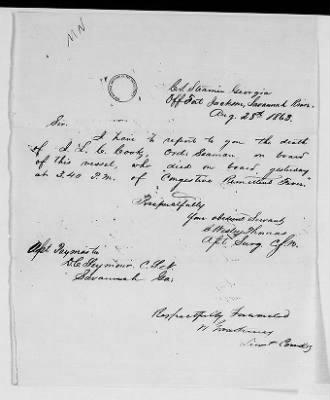 MN
C.S. Steamer Georgia
Off Fort Jackson, Savannah River.
Aug. 28th 1863.
Sir.
I have to report to you the death
of J. L. C. Couty, Ord. Seaman on board
of this vessel, who died on board, yesterday
at 3.40 P.M. of "Congestive Remittent Fever."
Respectfully
Your obedient Servant
Wesley Thomas
Ast. Surg. C.S.N.
Ast Paymaster
D.C. Seymour C.S.N.
Savannah Ga.
Respectfully Forwarded
W
Lieut Comdg